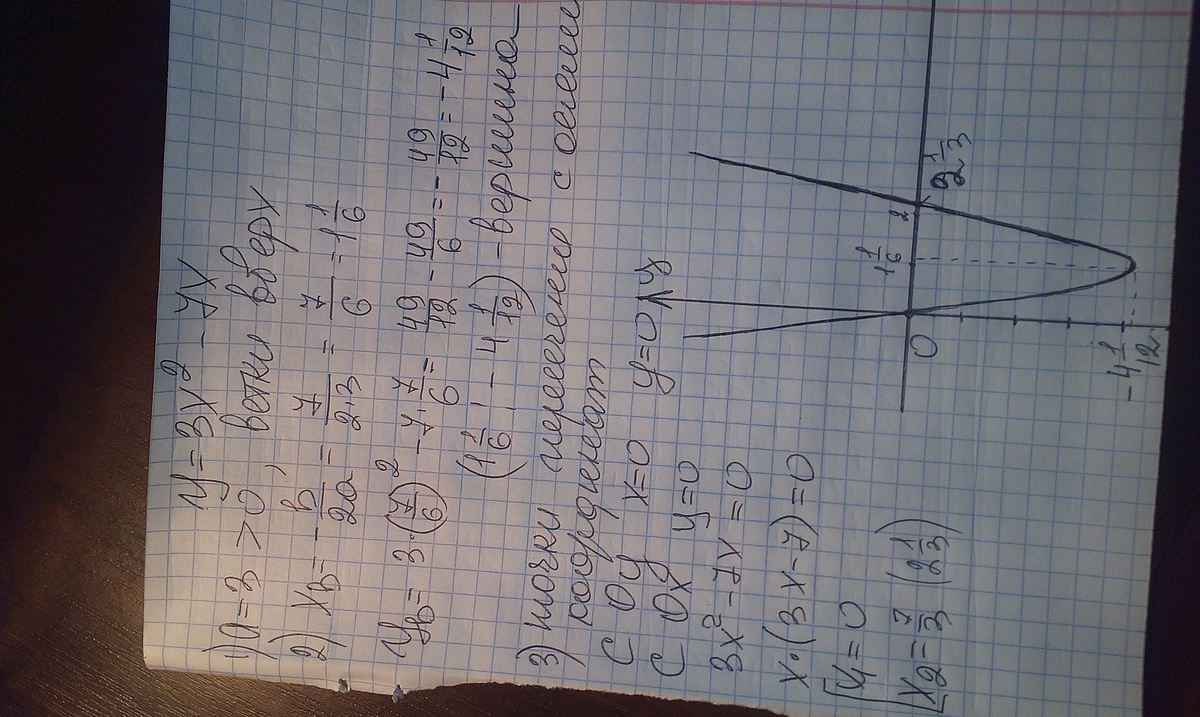 y = 3x² - 7x
1) a = 3 > 0, ветки вверх
2) xв = -b/2a = 7/2·3 = 7/6 = 1 1/6
yв = 3·(7/6)² - 7·7/6 = 49/12 - 49/6 = -49/12 = -4 1/12
(1 1/6; -4 1/12) - вершина
3) точки пересечения с осями
координат
С Oy x=0 y=0
С Ox y=0
3x² - 7x = 0
x·(3x-7)=0
x₁=0
x2 = 7/3 (2 1/3)
y
1 1/6
2
0
2 1/3
-4 1/12